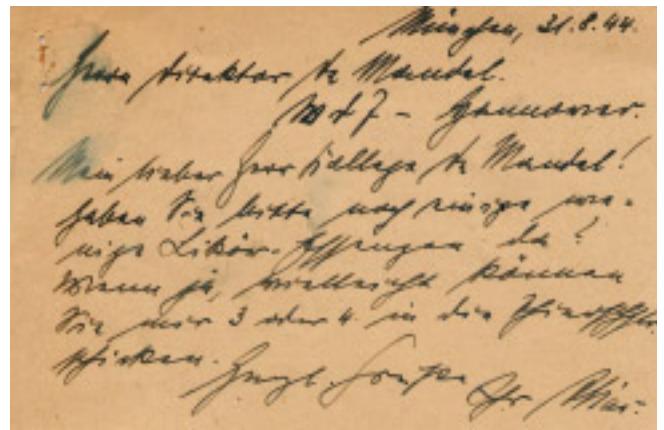 München, 31.8.44.
Herrn Direktor Dr Mandel.
W d F - Hannover.
Mein lieber Herr Kollege Dr Mandel!
haben Sie bitte noch einige we-
nige Likör-Essenzen da?
Wenn ja, vielleicht können
Sie mir 3 oder 4 in die
schicken.
Herzl. Grüße